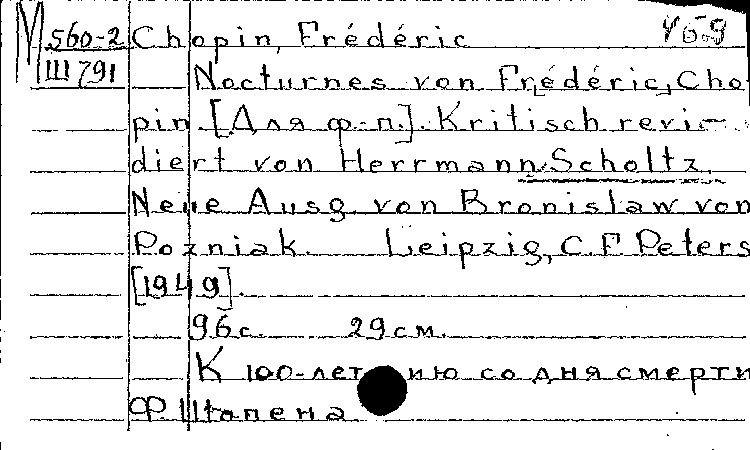 М 560-2 Chopin, Frédéric
III 791 Nocturnes von Frédéric, Cho
pin. [Для ф-п.]. Kritisch revi-
diert von Herrmann Scholtz.
Neue Ausg. von Bronislaw von
Pozniak. Leipzig, C. F. Peters
[1949].
96 с. 29 см.
К 100-лет ию со дня смерти
Ф. Шопена